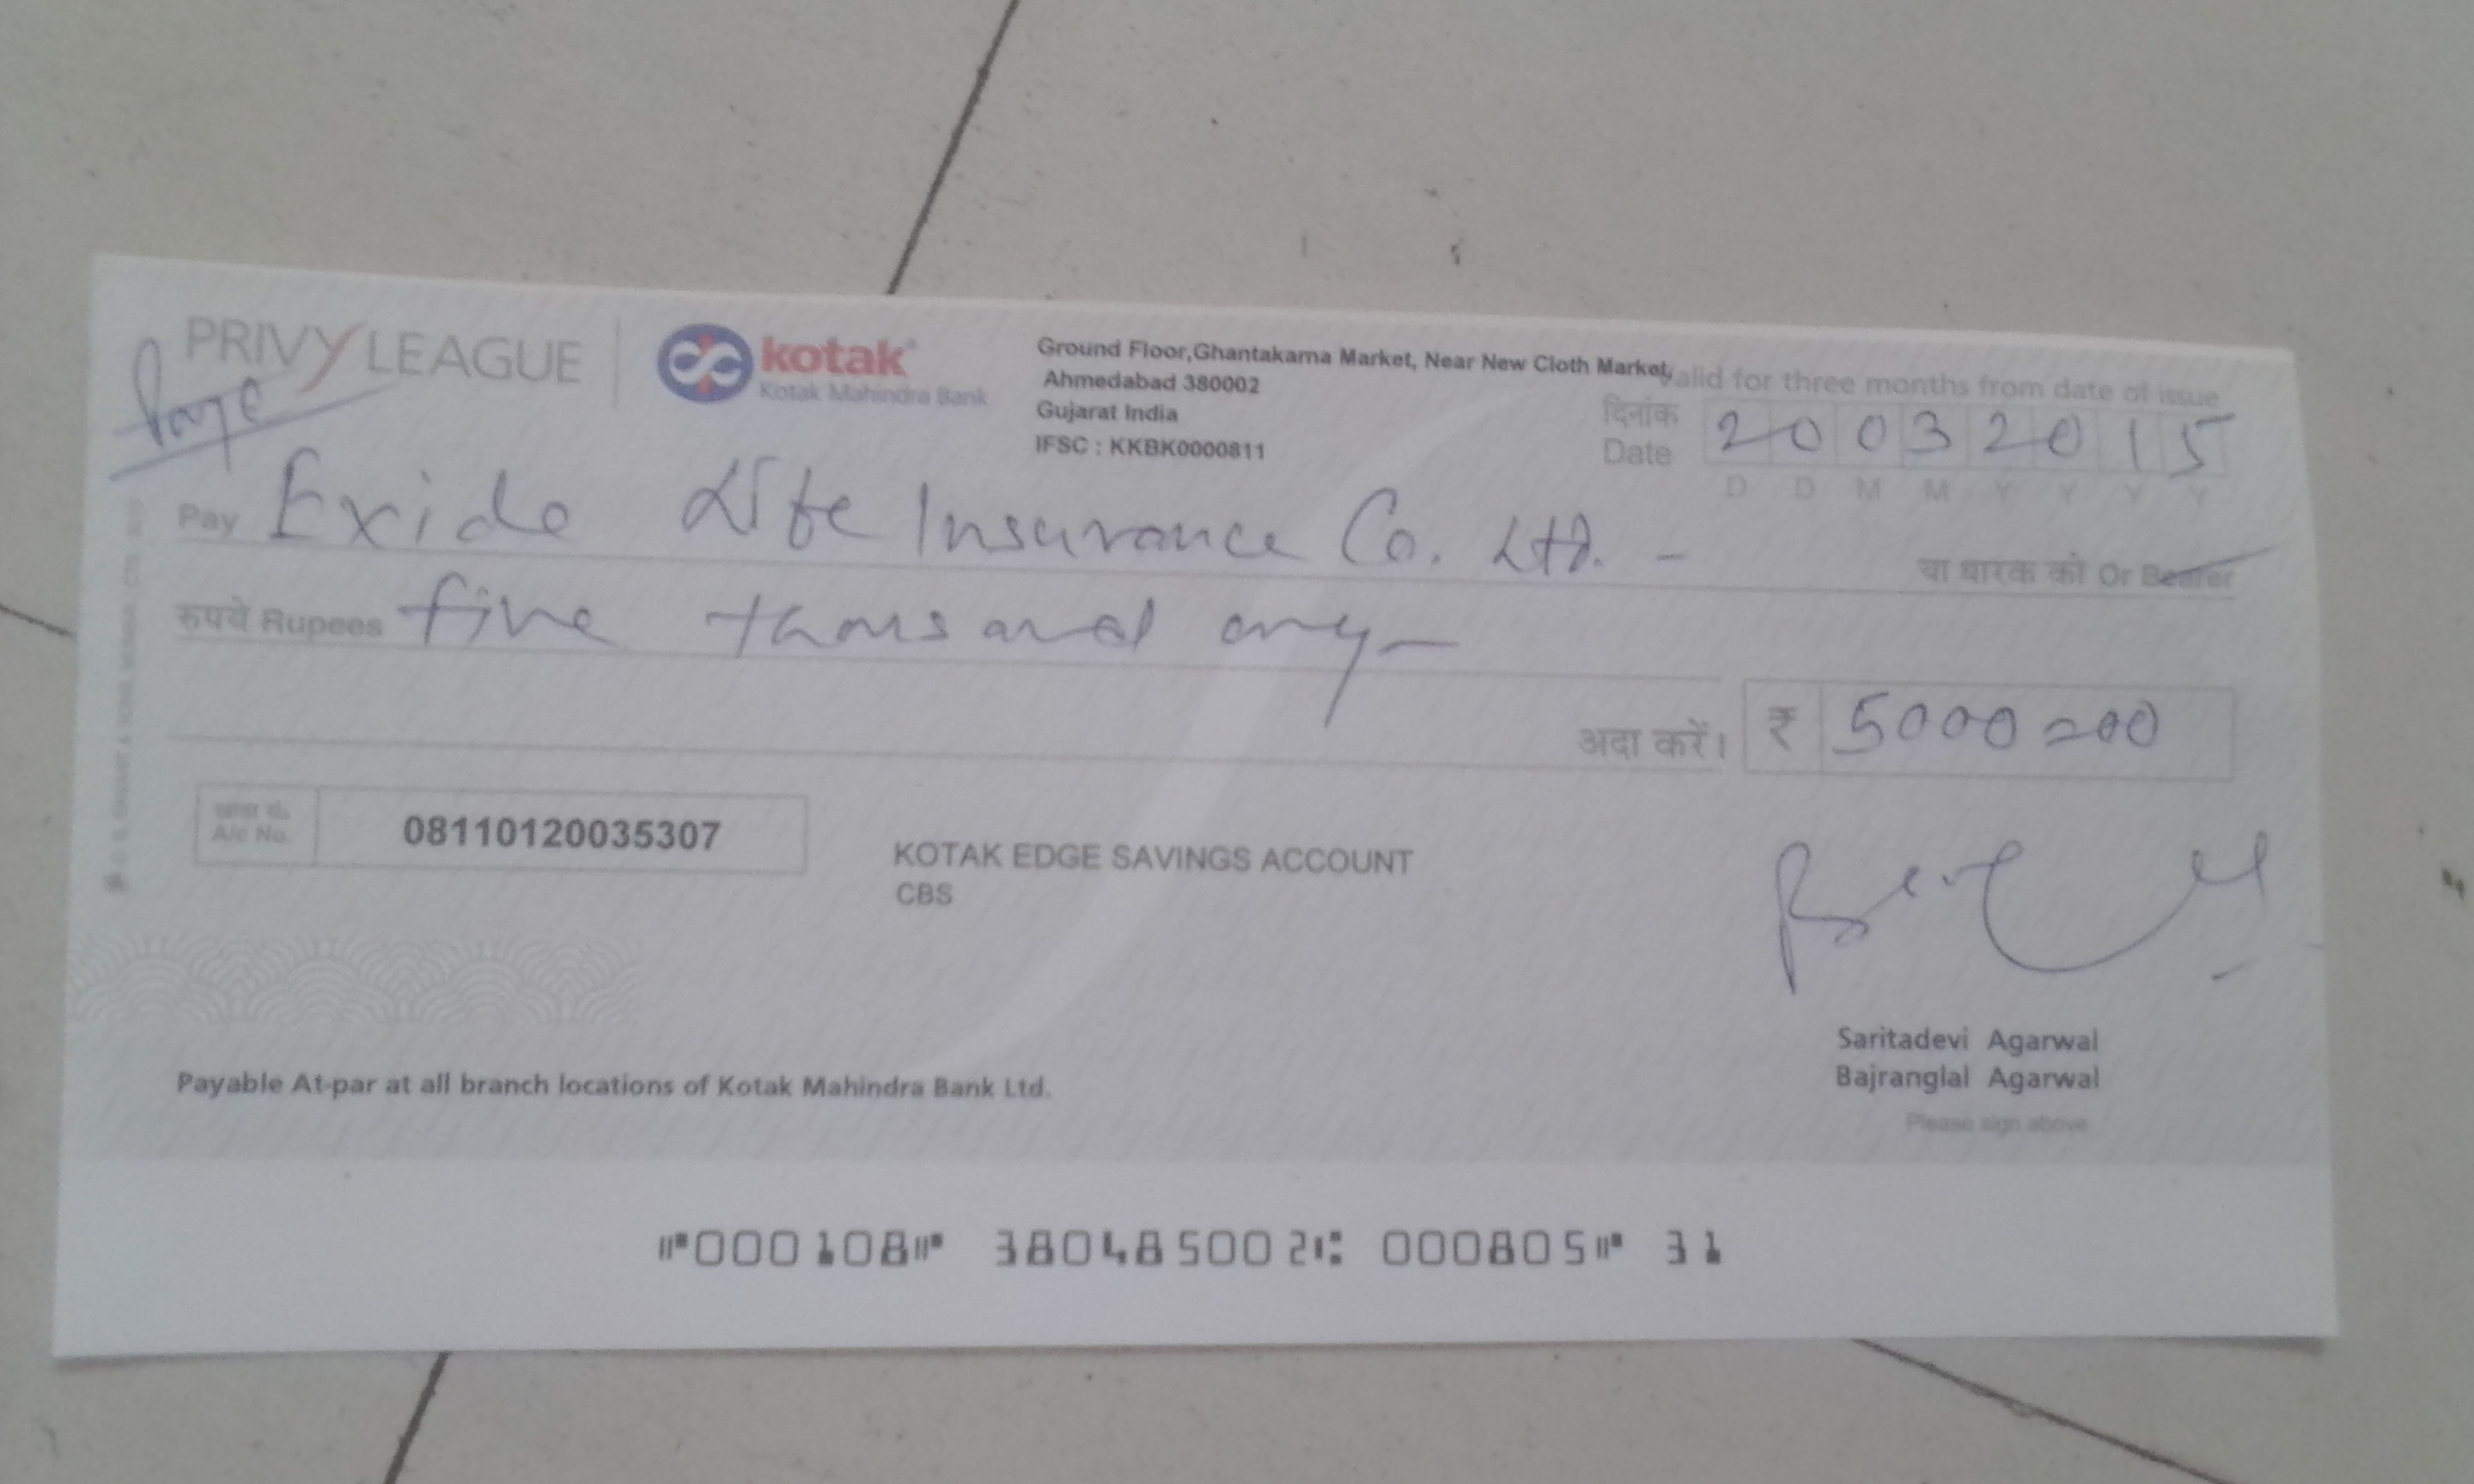 PRIVY LEAGUE
kotak
Kotak Mahindra Bank
Ground Floor,Ghantakarna Market, Near New Cloth Market,
Ahmedabad 380002
Gujarat India
IFSC : KKBK0000811
Valid for three months from date of issue
दिनांक
Date 20032015
D D M M Y Y Y Y
Pay Exide Life Insurance Co. Ltd. –
या धारक को Or Bearer
रुपये Rupees five thousand only –
अदा करें। ₹ 5000=00
खाता सं.
A/c No. 08110120035307
KOTAK EDGE SAVINGS ACCOUNT
CBS
Saritadevi Agarwal
Bajranglal Agarwal
Please sign above
Payable At-par at all branch locations of Kotak Mahindra Bank Ltd.
⑈000108⑈ 380485002⑆ 000805⑈ 31